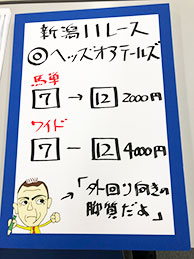 新潟11レース
◎ヘッズオアテールズ
馬単
7 → 12 2000円
ワイド
7 － 12 4000円
→「外回り向きの
脚質だよ」